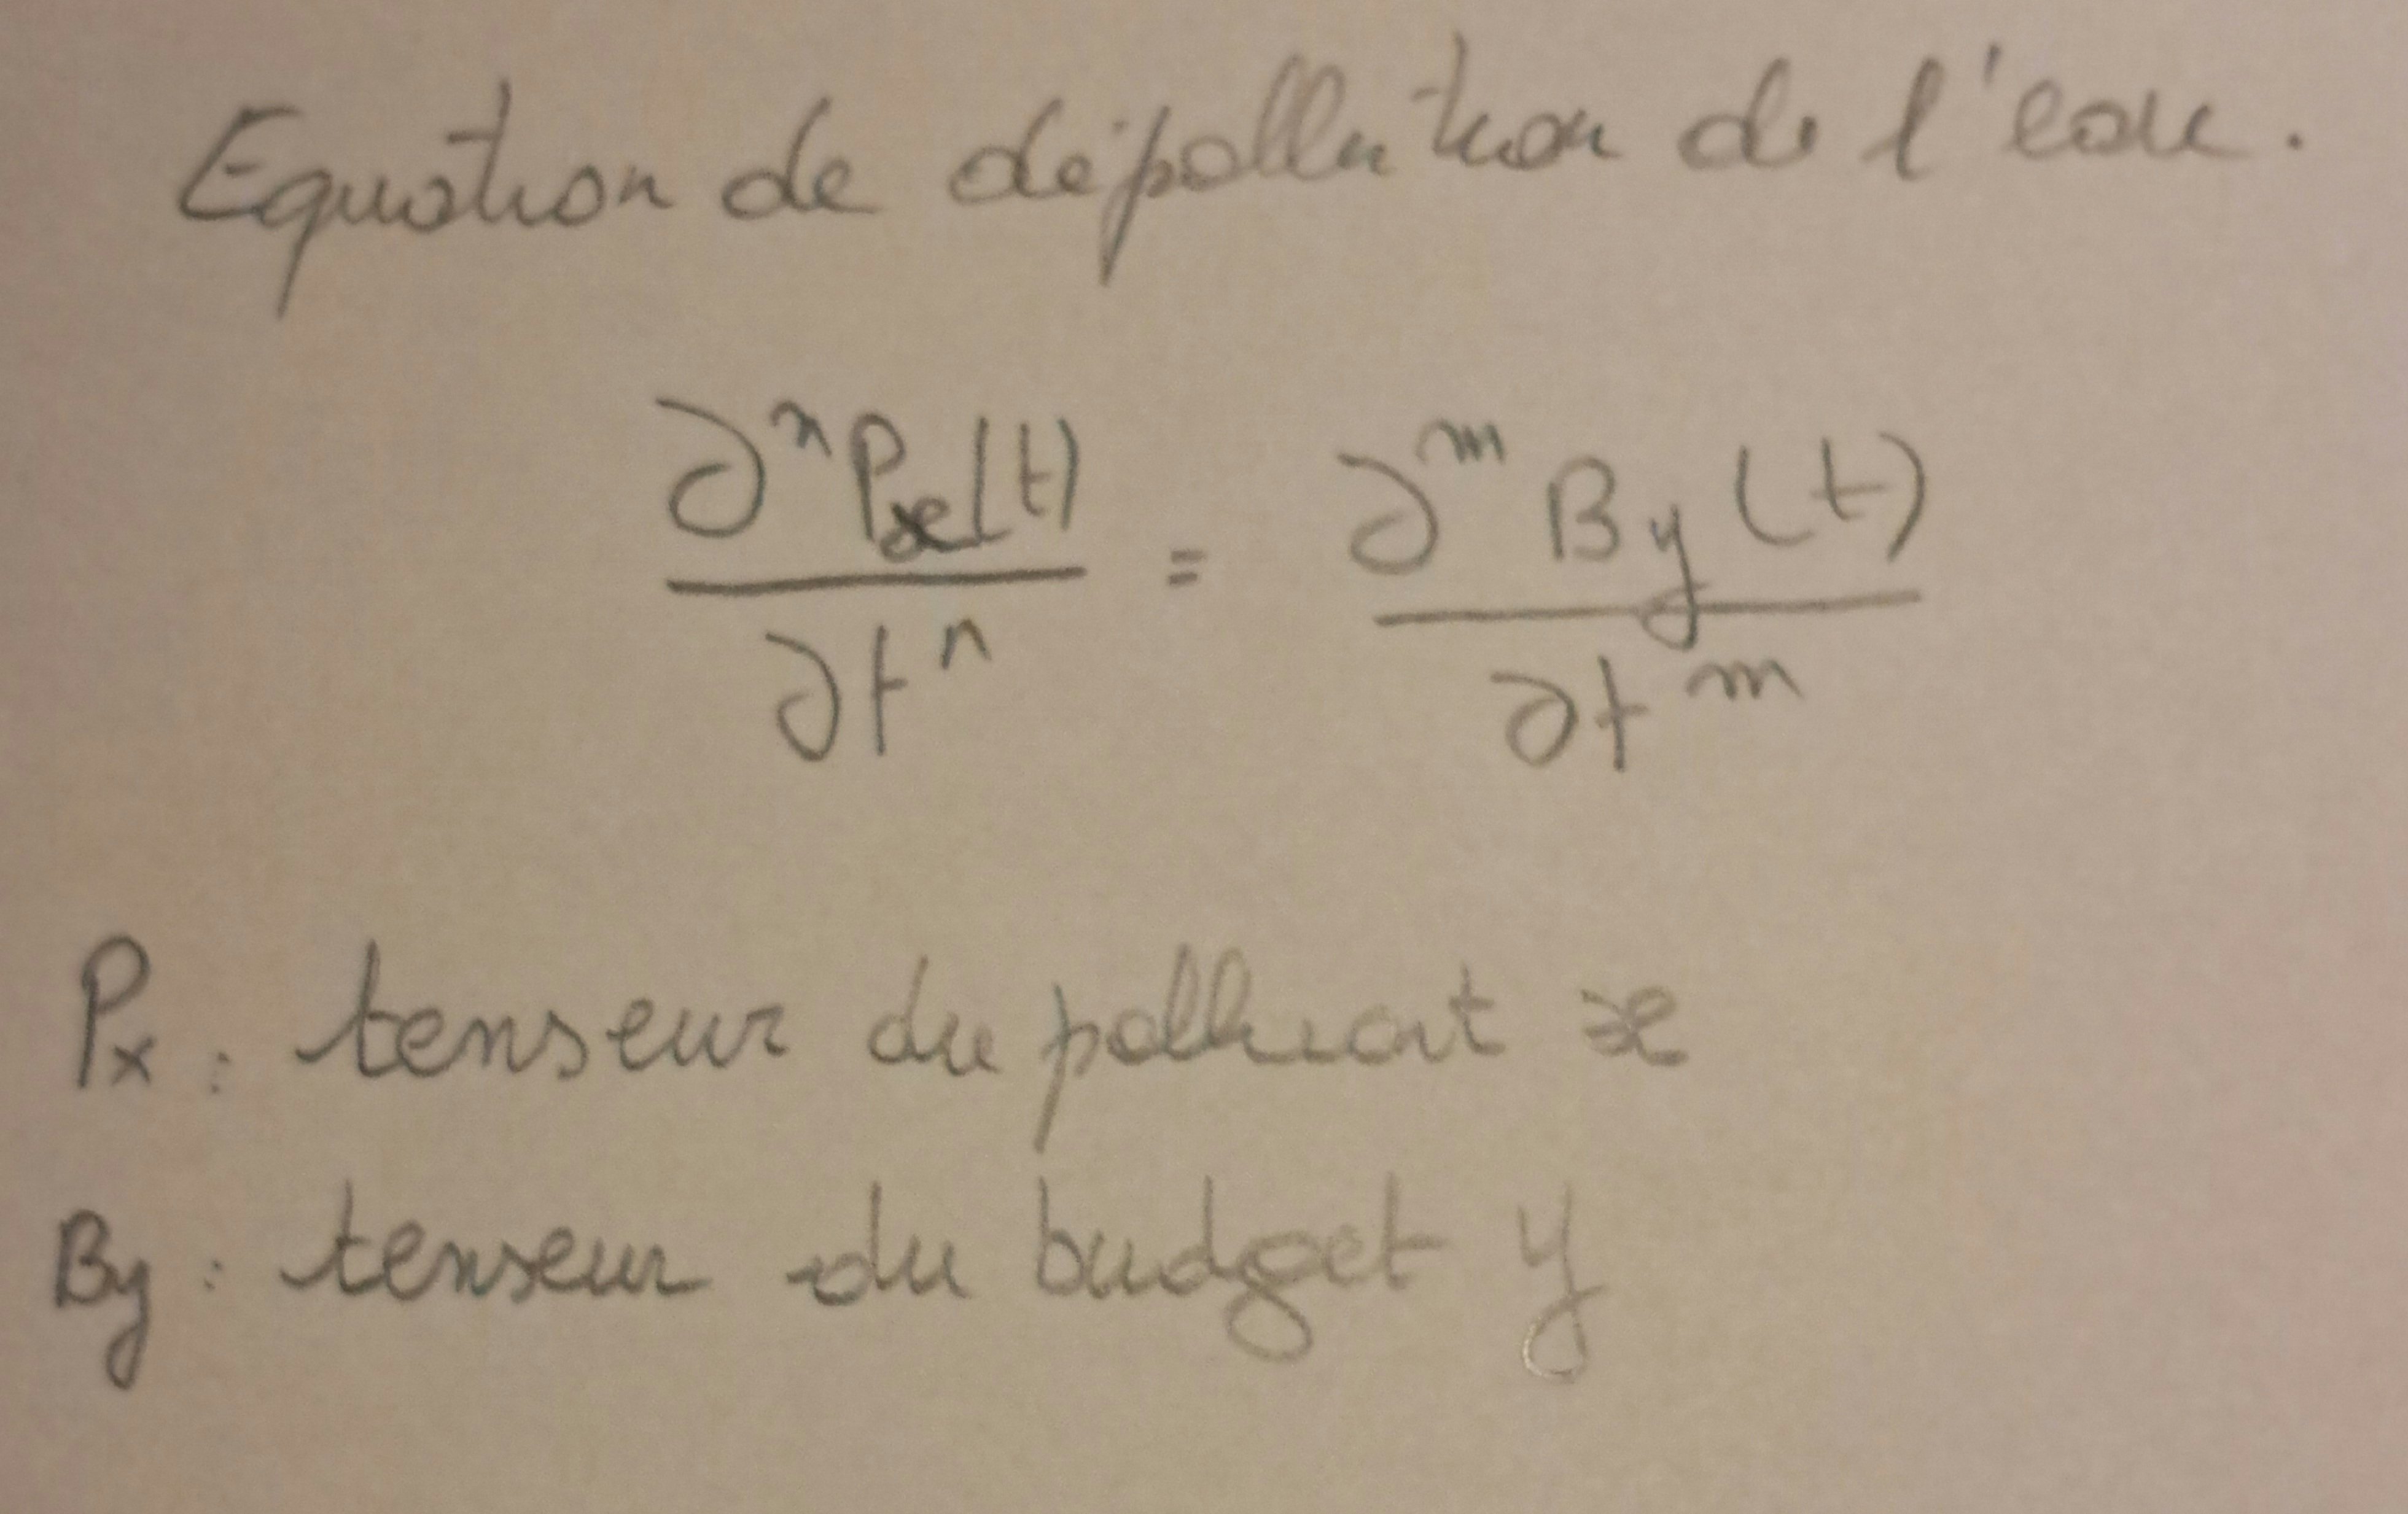 Equation de dépollution de l'eau.
∂ⁿPx(t)/∂tⁿ = ∂ᵐBy(t)/∂tᵐ
Px : tenseur du polluant x
By : tenseur du budget y